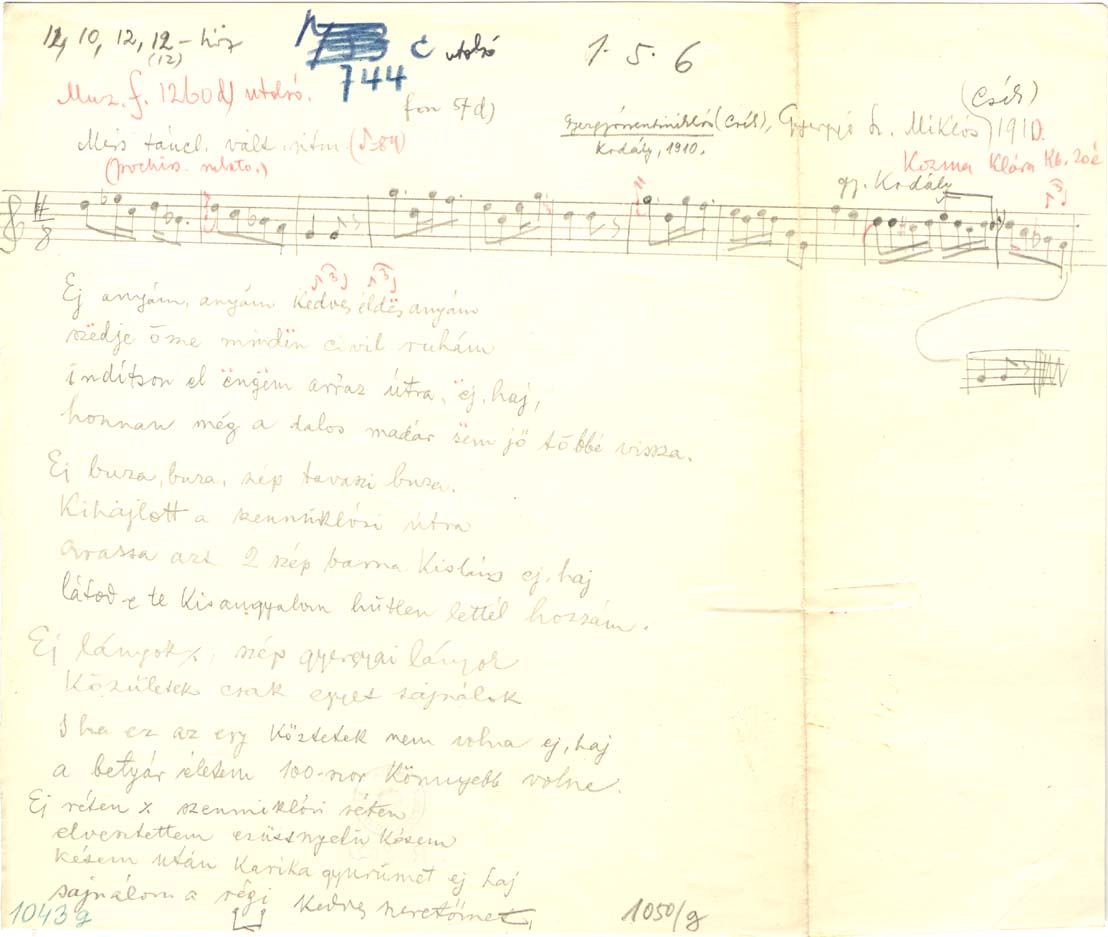 12, 10, 12, 12 – höz
(12)
744 c utolsó
1. 5. 6
Muz. f. 1260 d) utolsó.
fon 57 d)
(Csík)
Gyergyószentmiklós (Csík),
Kodály, 1910.
Gyergyó sz. Miklós 1910.
Mérs táncl. vált. ritm. (♪=84)
(pochiss. rubato.)
Kozma Klára Kb. 20é
gy. Kodály
8
3
3 3
Ej anyám, anyám kedves éldës anyám
szëdje össze mindën civil ruhám
indítson el ëngëm arra'z útra, ëj, haj,
honnan még a dalos madár sëm jő többé vissza.
Ej buza, buza, szép tavaszi buza.
Kihajlott a szenmiklósi útra
Arassa azt 2 szép barna kislány ej, haj
látod-e te kisangyalom hűtlen lettél hozzám.
Ej lányok ٪, szép gyergyai lányok
Közületek csak egyet sajnálok
S ha ez az egy köztetek nem volna ej, haj
a betyár életem 100-szor könnyebb volna.
Ej réten ٪ szenmiklósi réten
elvesztettem ezüssnyelű késem
késem után karika gyűrűmet ej haj
sajnálom a régi kedves szeretőmet.
1043 g
1050/g